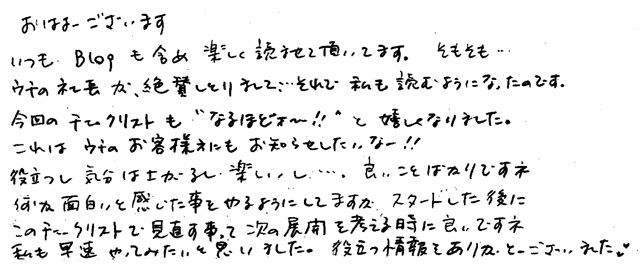 おはよーございます
いつも Blog も含め 楽しく読ませて頂いてます。 そもそも…
ウチの社長が、絶賛しとりまして…それで 私も 読むようになったのです。
今回の チェックリスト も "なるほどォ〜!!" と 嬉しくなりました。
これは ウチの お客様方にも お知らせしたいなー!!
役立つし 気分は上がるし 楽しいし…. 良いことばかりですネ
何か面白いと感じた事をやるようにしてますが スタートした後に
このチェックリストで見直す事って 次の展開を考える時に良いですネ
私も 早速 やってみたいと思いました。 役立つ情報をありがとーございました